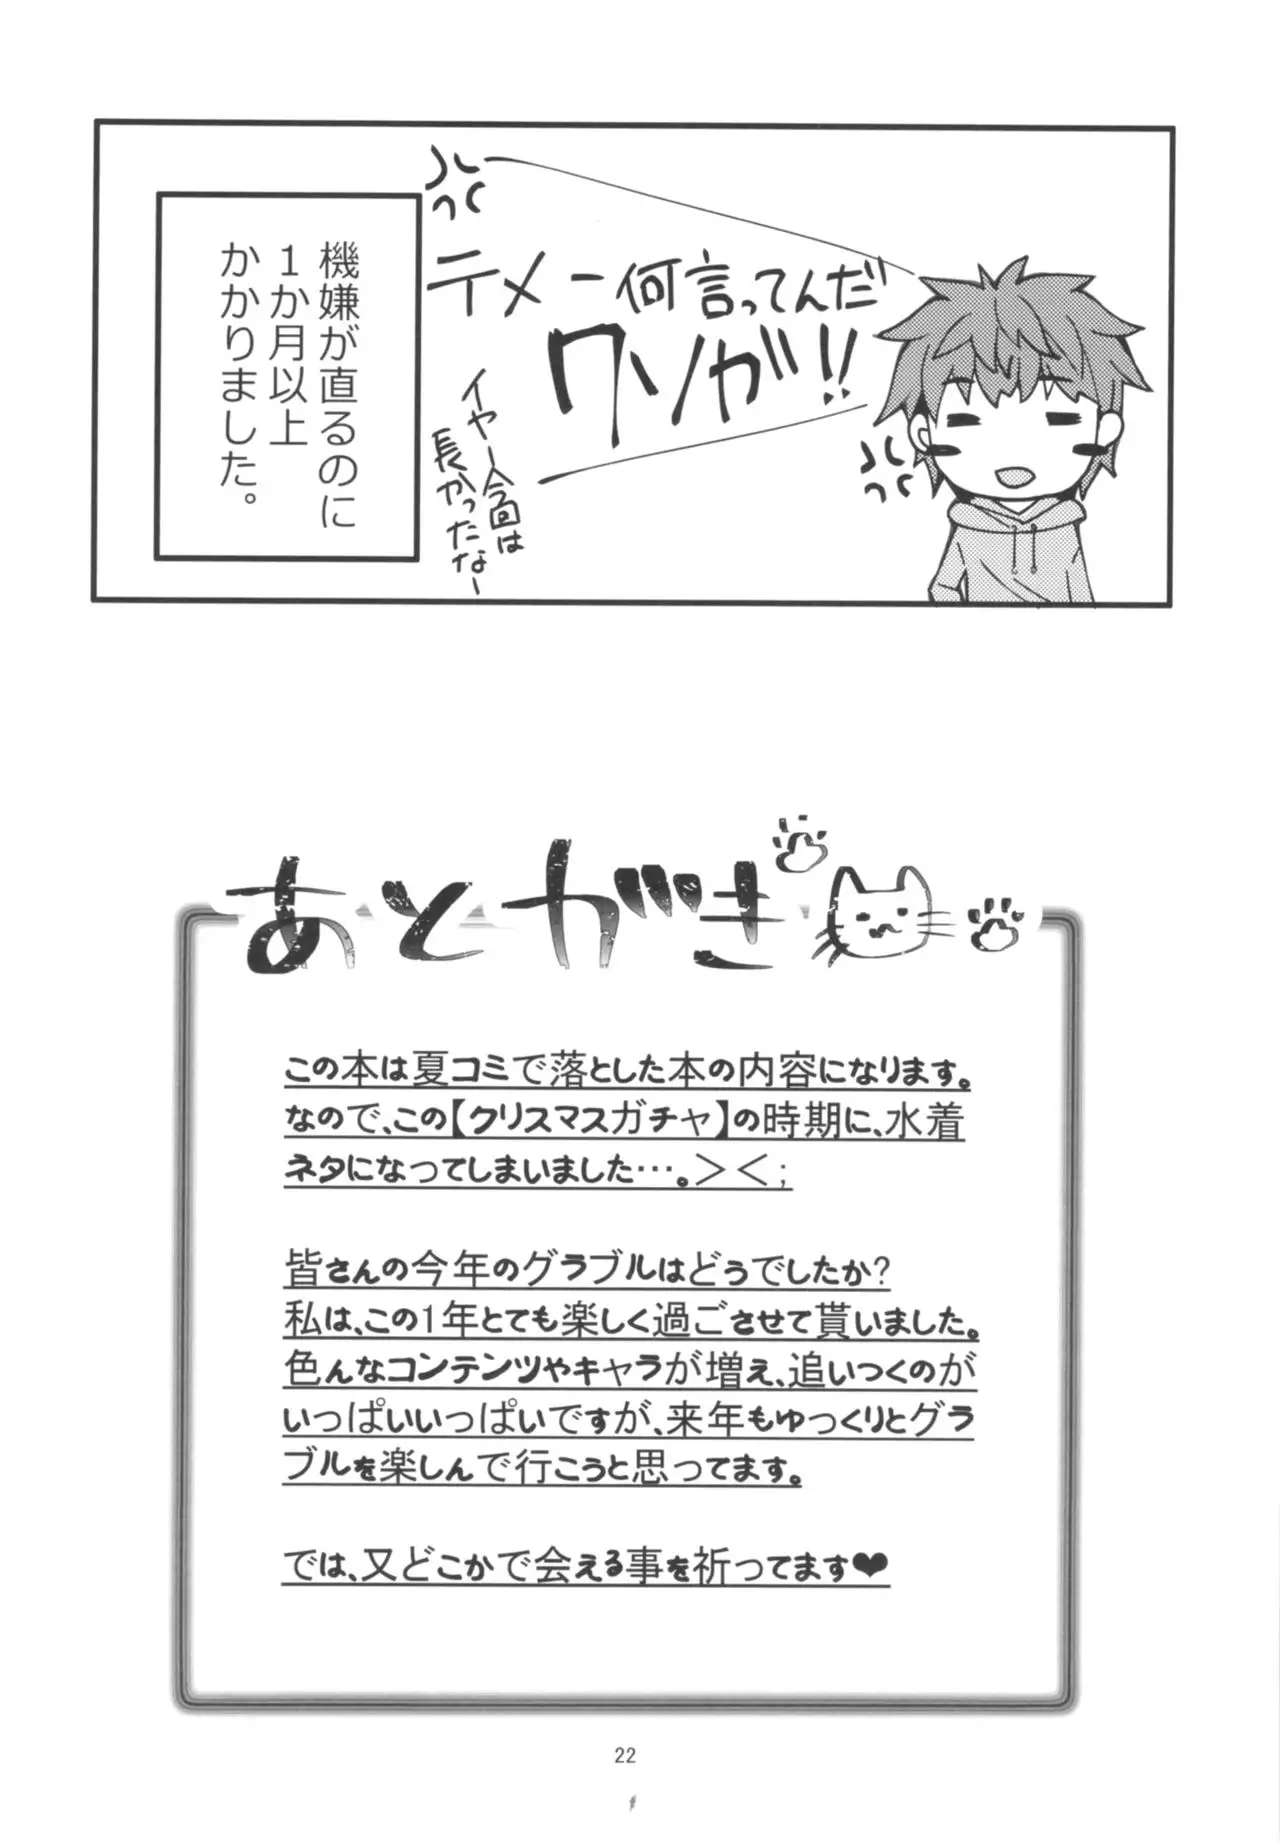 テメー何言ってんだ
クソが!!
イヤー今回は
長かったなー
機嫌が直るのに
1か月以上
かかりました。
あとがき
この本は夏コミで落とした本の内容になります。
なので、この【クリスマスガチャ】の時期に、水着
ネタになってしまいました…。＞＜;
皆さんの今年のグラブルはどうでしたか?
私は、この1年とても楽しく過ごさせて貰いました。
色んなコンテンツやキャラが増え、追いつくのが
いっぱいいっぱいですが、来年もゆっくりとグラ
ブルを楽しんで行こうと思ってます。
では、又どこかで会える事を祈ってます❤
22